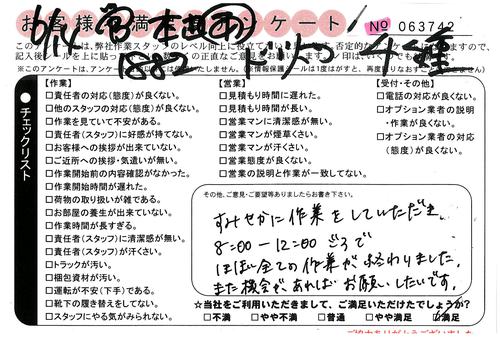 お客様満足アンケート
№ 063742
このアンケートは、弊社作業スタッフのレベル向上に役立て
記入後シールを上に貼って
※このアンケートは、アンケート
チェックリスト
【作業】
□責任者の対応(態度)が良くない。
□他のスタッフの対応(態度)が良くない。
□作業を見ていて不安がある。
□責任者(スタッフ)に好感が持てない。
□お客様への挨拶が出来ていない。
□ご近所への挨拶・気遣いが無い。
□作業開始前の内容確認がなかった。
□作業開始時間が遅れた。
□荷物の取り扱いが雑である。
□お部屋の養生が出来ていない。
□作業時間が長すぎる。
□責任者(スタッフ)に清潔感が無い。
□責任者(スタッフ)が汗くさい。
□トラックが汚い。
□梱包資材が汚い。
□運転が不安(下手)である。
□靴下の履き替えをしてない。
□スタッフにやる気がみられない。
【営業】
□見積もり時間に遅れた。
□見積もり時間が長い。
□営業マンに清潔感が無い。
□営業マンが煙草くさい。
□営業マンが汗くさい。
□営業態度が良くない。
□営業の説明と作業が一致してない。
【受付・その他】
□電話の対応が良くない。
□オプション業者の説明
・作業が良くない。
□オプション業者の対応
(態度)が良くない。
その他、ご意見・ご要望等ありましたらお書き下さい。
すみやかに作業をしていただき、
8:00-12:00ごろで
ほぼ全ての作業が終わりました。
また機会があればお願いしたいです。
☆当社をご利用いただきまして、ご満足いただけたでしょうか?
□不満 □やや不満 □普通 □やや満足 □満足